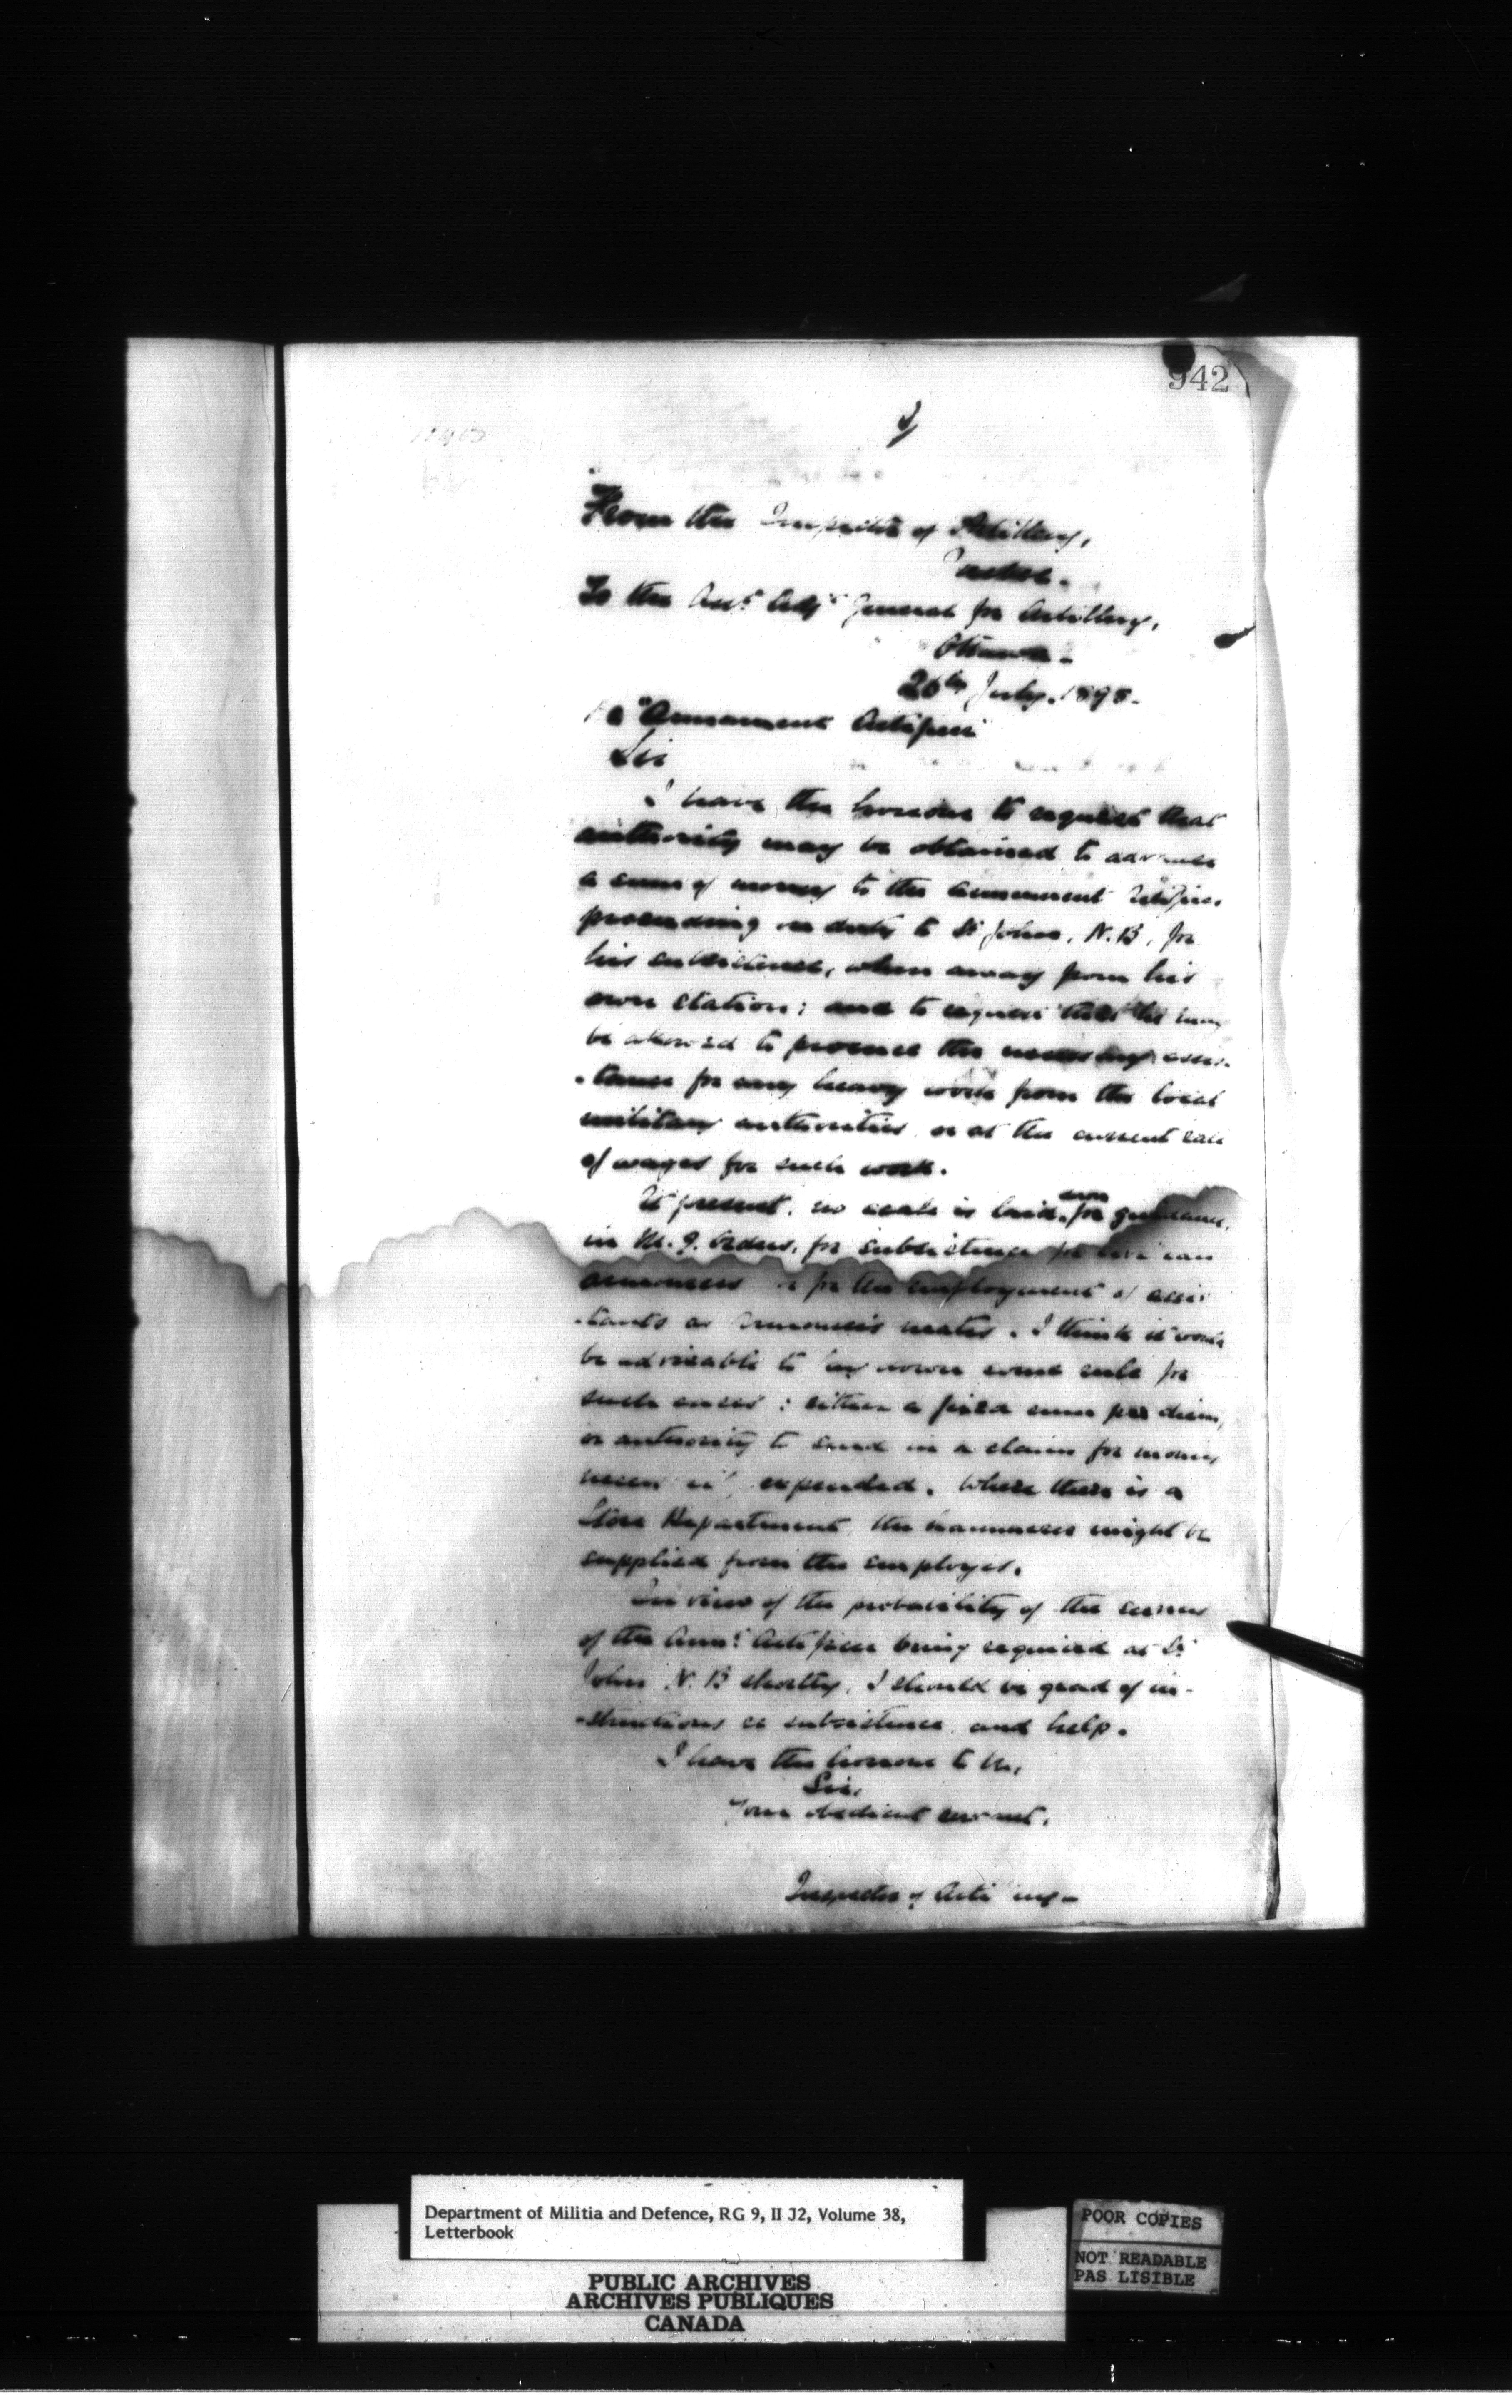 942
From the Inspector of Artillery,
Quebec.
To the Ass.t Adj.t General for Artillery,
Ottawa -
26th July. 1898.
Re "Armament Artificer"
Sir
I have the honour to request that
authority may be obtained to advance
a sum of money to the armament Artificer
proceeding on duty to St John, N.B, for
his subsistence, when away from his
own station; and to request that he may
be allowed to procure the necessary assis-
-tance for any heavy work from the local
military authorities or at the current rate
of wages for such work.
At present, no scale is laid down for guidance,
in M.G. Orders, for subsistence for
armourers or for the employment of assis
-tants as armourers mates. I think it would
be advisable to lay down some rule for
such cases: either a fixed sum per diem,
or authority to send in a claim for money
expended. Where there is a
Store Department the hammerer might be
supplied from the employés.
In view of the probability of the services
of the Arm.t Artificer being required at St
John N.B shortly, I should be glad of in-
-structions re subsistence and help.
I have the honour to be,
Sir,
Your obedient servant,
Inspector of Artillery -
Department of Militia and Defence, RG 9, II J2, Volume 38,
Letterbook
PUBLIC ARCHIVES
ARCHIVES PUBLIQUES
CANADA
POOR COPIES
NOT READABLE
PAS LISIBLE